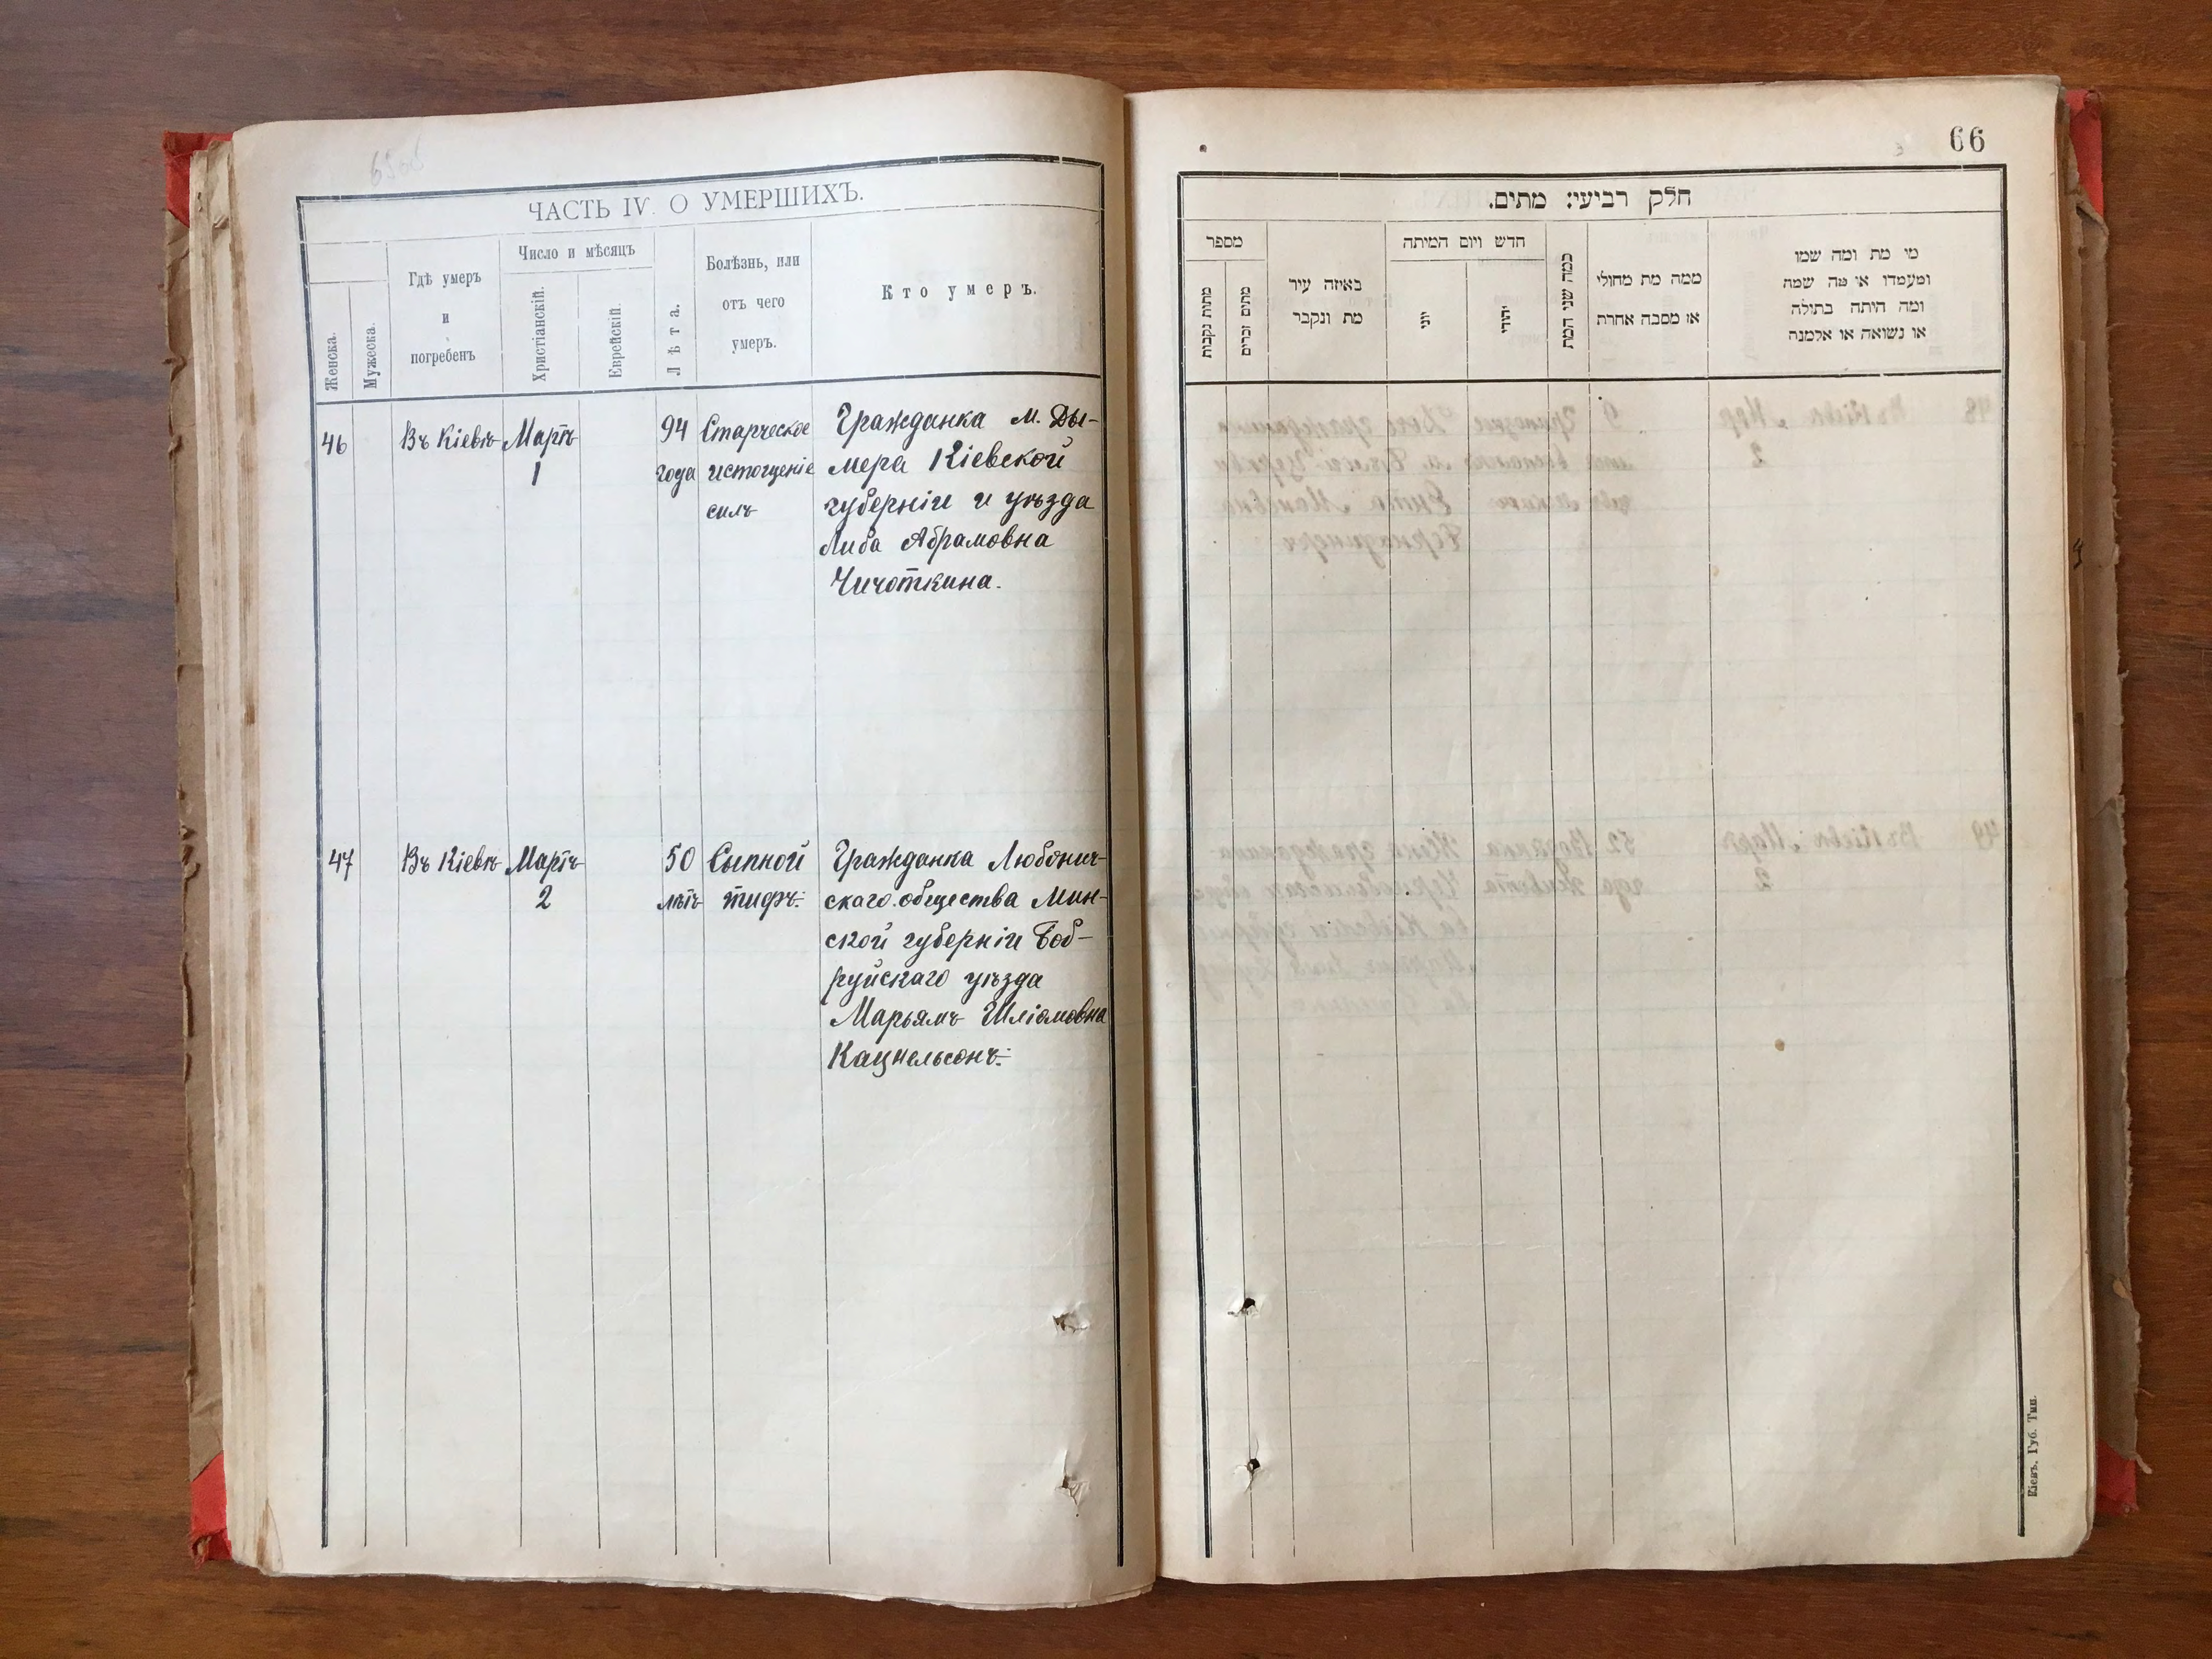 ЧАСТЬ IV. О УМЕРШИХЪ.
Женска.
Мужеска.
Гдѣ умеръ
и
погребенъ
Число и мѣсяцъ
Христіанскій.
Еврейскій.
Лѣта.
Болѣзнь, или
отъ чего
умеръ.
Кто умеръ.
46 Въ Кіевѣ Мартъ 94 Старческое Гражданка м. Ды-
1 года истощеніе мера Кіевской
силъ губерніи и уѣзда
Либа Абрамовна
Чичоткина.
47 Въ Кіевѣ Мартъ 50 Сыпной Гражданка Любонич-
2 лѣтъ тифъ. скаго общества Мин-
ской губерніи Боб-
руйскаго уѣзда
Марьямъ Шліомовна
Кацнельсонъ.
66
חלק רביעי: מתים.
מספר
מתות נקבות
מתים זכרים
באיזה עיר
מת ונקבר
חדש ויום המיתה
יוני
יהודי
כמה שני המת
ממה מת מחולי
או מסבה אחרת
מי מת ומה שמו
ומעמדו או מה שמה
ומה היתה בתולה
או נשואה או אלמנה
Кіевъ. Губ. Тип.